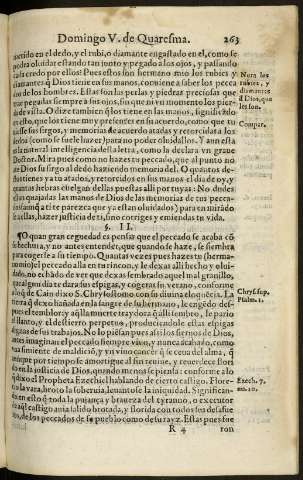 Domingo V. de Quaresma. 263
metido en el dedo, y el rubi, o diamante engastado en el, como se
podra olvidar estando tan junto y pegado a los ojos, y passando
cada credo por ellos? Pues estos son hermano mio los rubies y
diamantes q̃ Dios tiene en sus manos, conviene a saber los pecca
dos de los hombres. Estas son las perlas y piedras preciosas que
trae pegadas siempre a sus ojos, sin que ni vn momento los pier-
da de vista. O dize tambien q̃ los tiene en las manos, significãdo
en esto, que los tiene muy presentes en su acuerdo, como que tu
viesse sus
y memorias de acuerdo atadas y retorcidas a los
dedos (como se suele hazer) para no poder olvidallos. Y aun esta
es la natural inteligencia desta letra, como la declara vn grave
Doctor. Mira pues como no hazes tu peccado, que al punto no
ate Dios su
al dedo haziendo memoria del. O quantos de-
tienes ya tu atados, y retorcidos en sus manos el dia de oy, y
quantas hebras cuelgan dellas puestas alli por tuyas: No dudes
las manos de Dios de las memorias de tus pecca-
(aunq̃ a ti te parezca que ya estan olvidados) para en mirãdo
a ellas, hazer justicia de ti, sino corriges y emiendas tu vida.
§. II.
O quan gran ceguedad es pensar que el peccado se acaba cõ
hechura, y no antes entender, que quando se haze, se siembra
para cogerse a su tiempo. Quantas vezes pues hazes tu (herma-
no mio) el peccado alla en tu rincon, y le dexas alli hecho y olvi-
dado, no echãdo de ver que dexas sembrado aquel mal granillo,
el qual algun dia te dara sus espigas, y cogeras su verano, conforme
a lo q̃ de Cain dixo S. Chrysostomo con su divina eloquẽcia. La
tierra q̃ dexo bañada en la sangre de su hermano, le engẽdro des-
pues el temblor: y aq̃lla muerte
q̃ alli sembro, le pario
el llanto, y el destierro perpetuo, produciendole estas espigas el
grano de sus trabajos. No lo piensan pues assi los siervos de Dios,
antes imaginan el peccado siempre vivo, y nunca acabado, como
vna simiente de maldiciõ, y vn vivo cancer q̃ se ceva del alma, q̃
siempre por tiempo se
si reniue, y reverdece flori
do en la justicia de Dios, quando menos se piensa: conforme a lo
q̃ dixo el Propheta Ezechiel hablando de cierto castigo. Flore-
cio la vara, broto la sobervia, levantose la iniquidad. Significan-
do en esto q̃ toda la pujança y braveza del tyranno, o executor
de aq̃l castigo avia salido brotada, y florida con todos sus desafue
ros, de los peccados de su pueblo como de su rayz. Estas pues fue
R 4 ron
Nota los
rubies, y
diamantes
q̃ Dios, que
les son.
Compar.
Chrys. sup.
Psalm. 1.
Ezech. 7.
nu. 10.